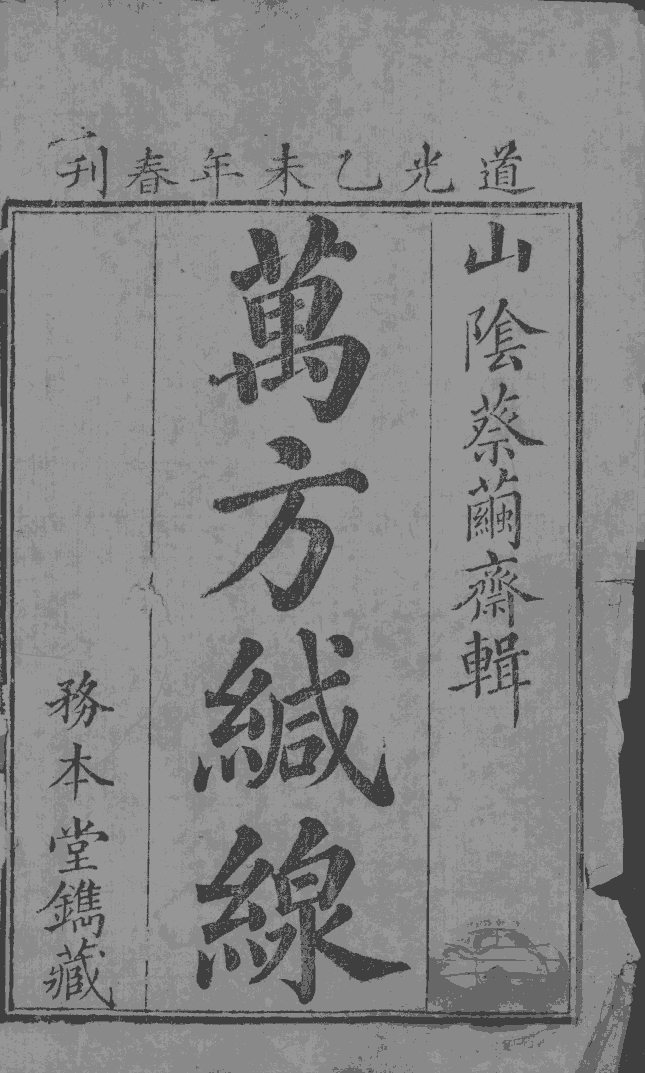 道光乙未年春刊
山陰蔡繭齋輯
萬方緘線
務本堂鐫藏